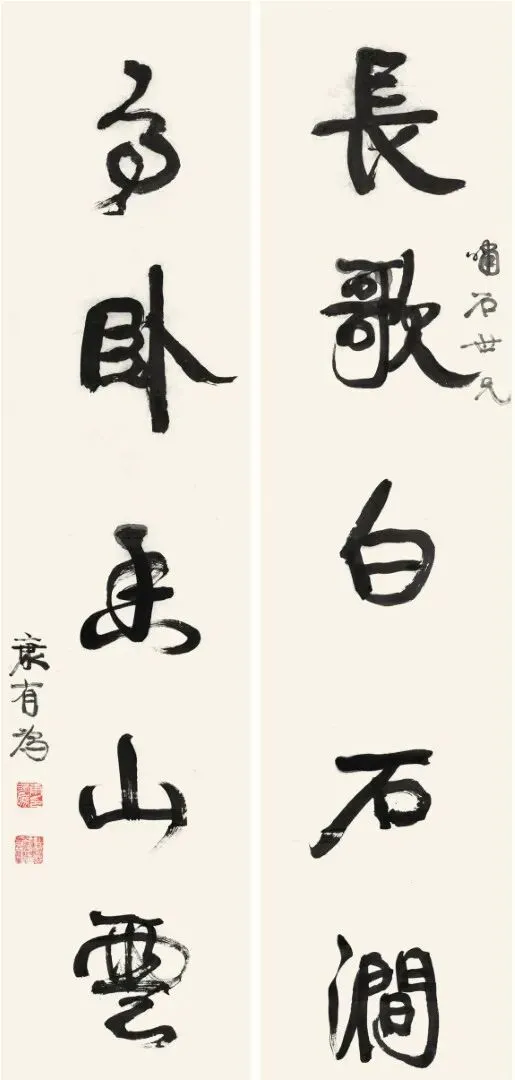 嘯石世兄
長歌白石澗
高臥山雲
康有為